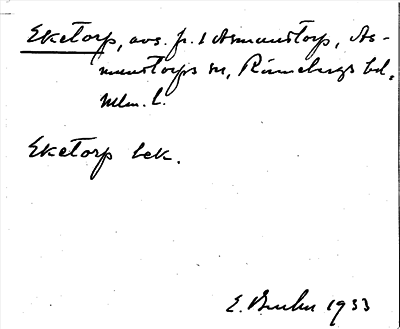 Eketorp, avs. fr. 1 Asmundstorp, As-
mundstorps sn, Rönnebergs hd,
Mlm. l.
Eketorp bek.
E. 1933